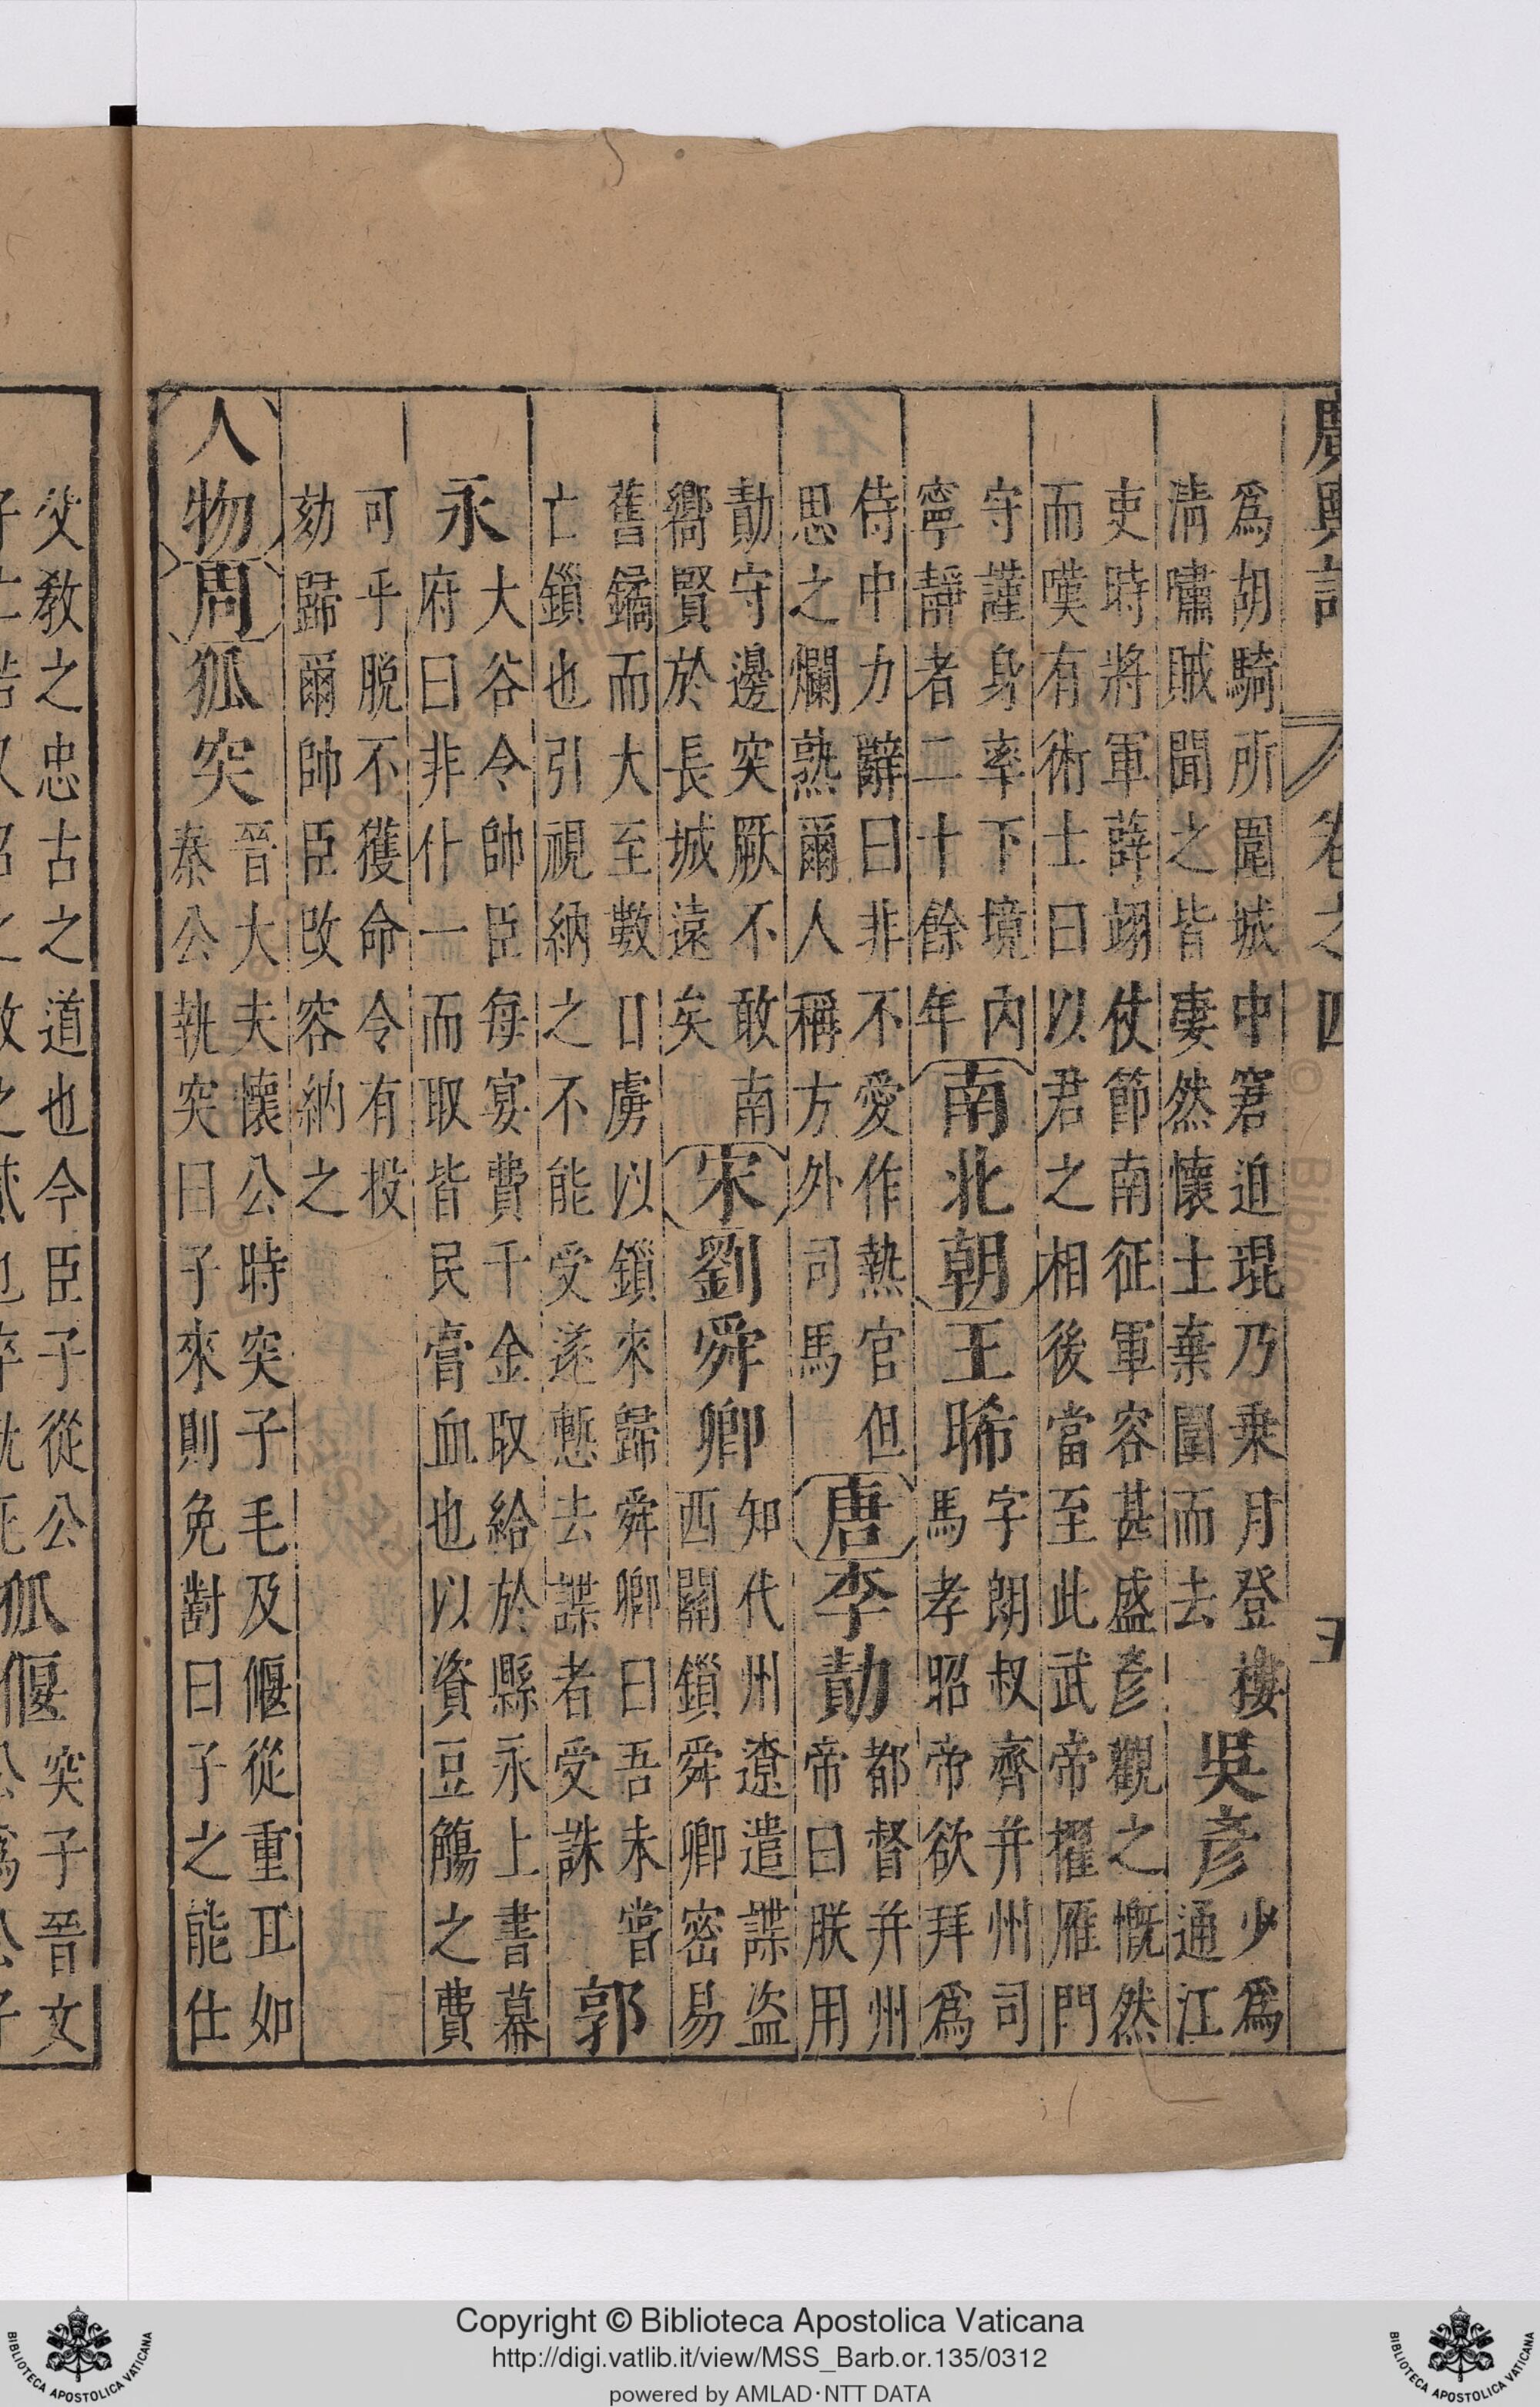 廣輿記 卷之四 五
爲胡騎所圍城中窘迫琨乃乗月登樓
淸嘯賊聞之皆悽然懷土棄圍而去
吳彥
少爲
通江
吏時將軍薛翊仗節南征軍容甚盛彥觀之慨然
而嘆有術士曰以君之相後當至此武帝擢雁門
守謹身率下境內
寧靜者二十餘年
南北朝王晞
字朗叔齊并州司
馬孝昭帝欲拜爲
侍中力辭曰非不愛作熱官但
思之爛熟爾人稱方外司馬
唐李勣
都督并州
帝曰朕用
勣守邊突厥不敢南
嚮賢於長城遠矣
宋劉舜卿
知代州遼遣諜盜
西關鎻舜卿密易
舊鐍而大至數日虜以鎻來歸舜卿曰吾未嘗
亡鎻也引視納之不能受遂慙去諜者受誅
郭
永
大谷令帥臣每宴費千金取給於縣永上書幕
府曰非什一而取皆民膏血也以資豆觴之費
可乎脫不獲命令有投
劾歸爾帥臣改容納之
人物周狐突
晉大夫懷公時突子毛及偃從重耳如
秦公執突曰子來則免對曰子之能仕
父教之忠古之道也今臣子從公
狐偃
突子晉文
Copyright © Biblioteca Apostolica Vaticana
http://digi.vatlib.it/view/MSS_Barb.or.135/0312
powered by AMLAD·NTT DATA
BIBLIOTECA APOSTOLICA VATICANA
BIBLIOTECA APOSTOLICA VATICANA